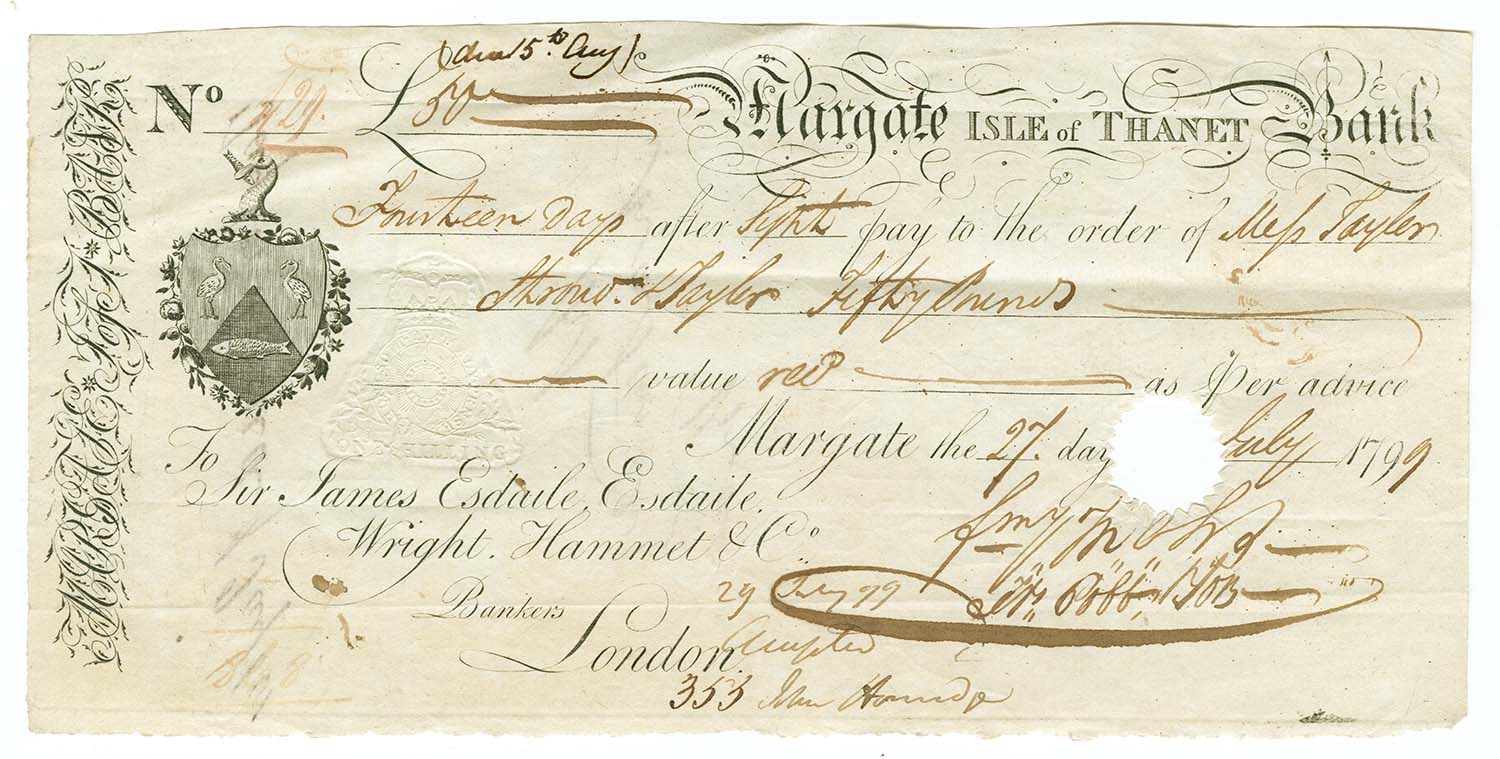 MARGATE I. of T. BANK
(due 15th Aug)
No 29. £ 50 Margate ISLE of THANET Bank
Fourteen Days after Sight pay to the order of Mess Taylor
& Taylor Fifty Pounds
value recd as Per advice
SHILLING
Margate the 27. day July 1799
To
Sir James Esdaile, Esdaile,
Wright, Hammet & Co
Bankers
London.
29 July 99
Accepted
353